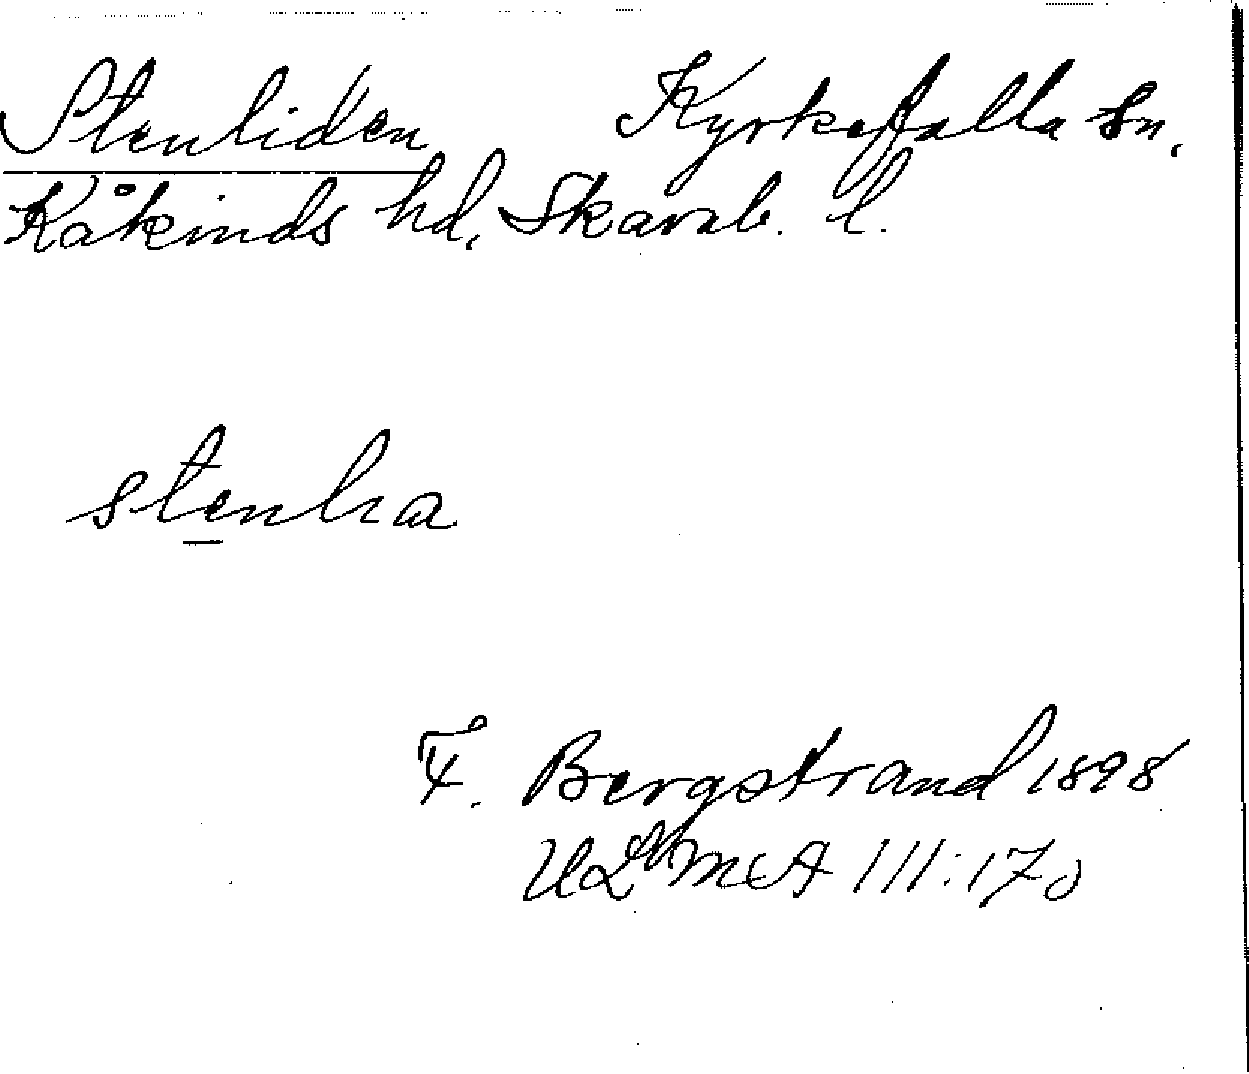 Stenliden Kyrkefalla sn.
Kåkinds hd, Skarab. l.
stenlia
F. Bergstrand 1898
ULMA 111:170